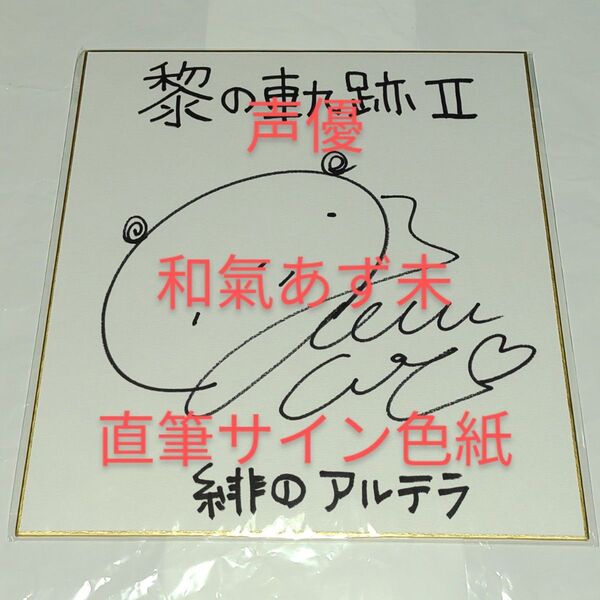 黎の軌跡Ⅱ
声優
和氣あず未
直筆サイン色紙
緋のアルテラ